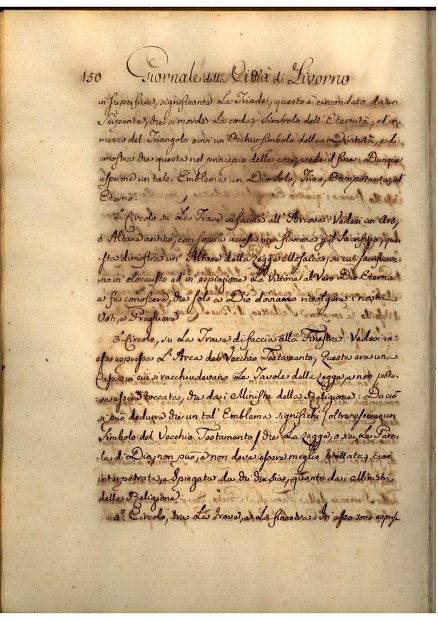 150 Giornale della Città di Livorno
in superfice, significante La Triade; questo è circondato da un
Serpente, che si morde La coda, Simbolo dell'Eternità; ed in
mezzo del Triangolo avvi un Occhio simbolo della Divinità, e di-
mostra che questa nel principio delle cose, vede il fine. Dunque
esprime un tale Emblema un Dio Solo, Trino, Onnipotente, ed
Eterno.
2.º Circolo su La Trave in faccia all'Arcova. Vedesi un Ara,
o Altare antico, con sopra accesa una fiamma p il Sacrifizio, que-
sto dimostra un' Altare della Legge su cui sacrificava-
no in olocausto ed in espiazione La Vittima al Vero Dio Eterno
e fa conoscere, che solo a Dio doviamo rivolgere i nostri
Voti, e Preghiere.
3.º Circolo, su La Trave di faccia alla Finestra. Vedesi in
esso espressa L'Arca del Vecchio Testamento, Questa era una
Cassa in cui si racchiudevano Le Tavole della Legge, e non pote-
va essere toccata, che dai Ministri della Religione: Da ciò
si può dedurre che un tal' Emblema significhi (oltre essere un
Simbolo del Vecchio Testamento) che La Legge, o sia La Paro-
la di Dio, non può, e non deve essere meglio trattata; cioè
interpetrata, e spiegata da chi che sia, quanto dai Ministri
della Religione.
4.º Circolo, tra La trave, e La finestra. In esso sono espres-